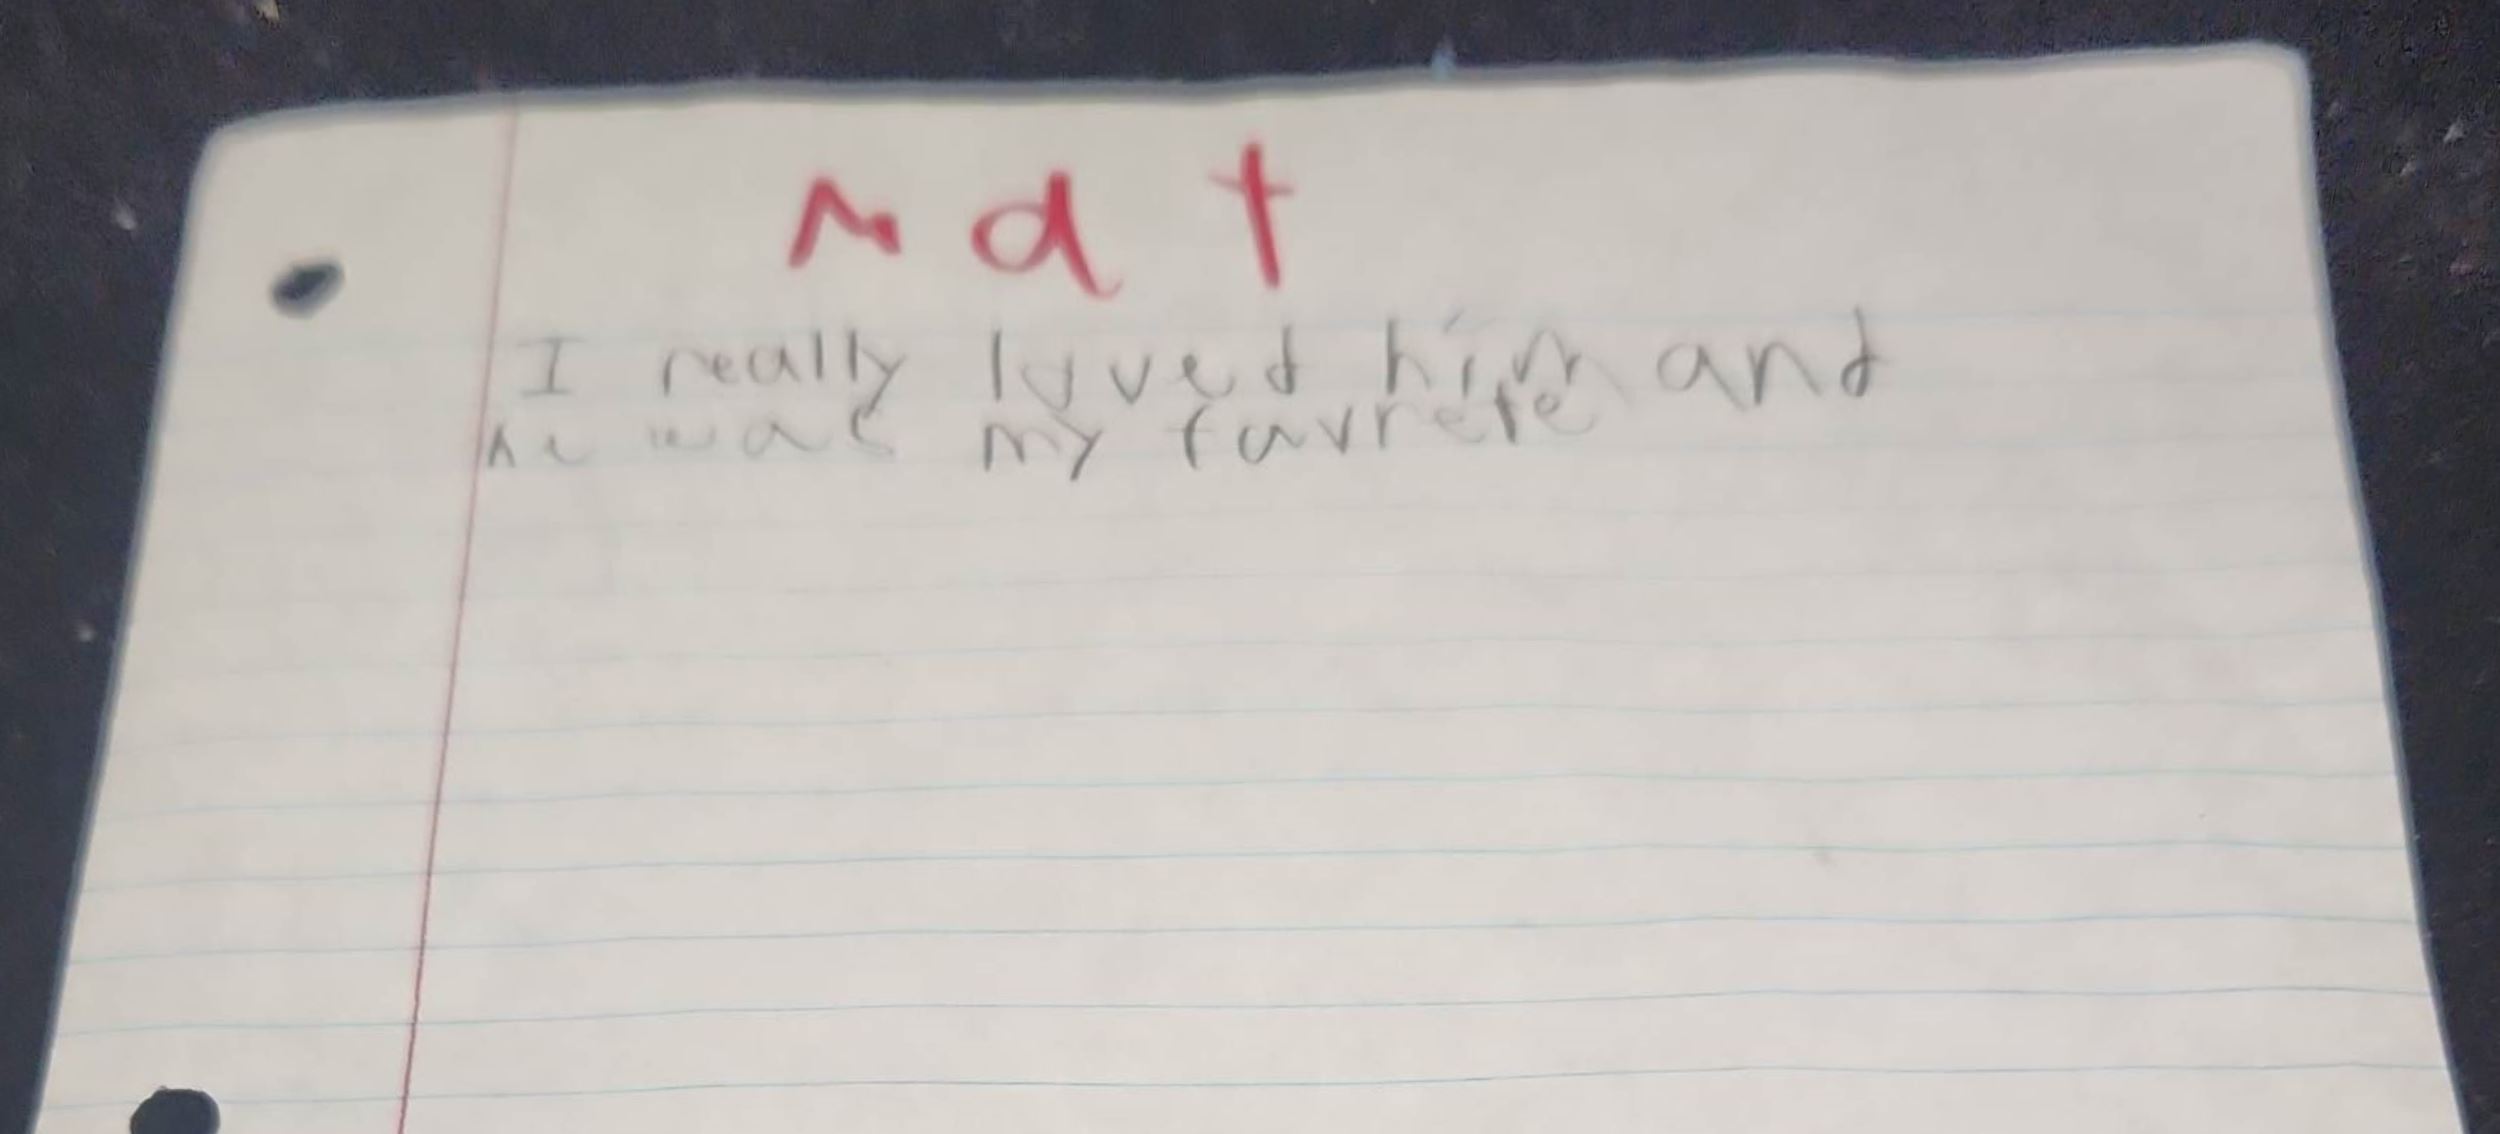 Mat
I really loved him and
he was my favrete